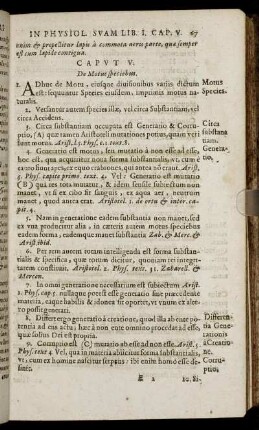 IN PHYSIOL. SVVM LIB. I. CAP. V. 67
enim & projicitur lapis à commota aeris parte, qua semper
est cum lapide contigua.
CAPVT V.
De Motus speciebus.
1. ADhuc de Motu, ejusque divisionibus variis dictum
est: sequuntur Species ejusdem, imprimis motus na-
turalis.
Motus
Species.
2. Versantur autem species illæ, vel circa Substantiam, vel
circa Accidens.
3. Circa substantiam occupata est Generatio & Corru-
ptio, (A) quæ tamen Aristoteli mutationes potius, quàm ve-
rè sunt motus. Arist. l. 5. Phys. c. 1. text. 8.
Circa
substan-
tiam
Genera-
tio,
4. Generatio est motus, seu mutatio à non esse ad esse,
hoc est, qua acquiritur nova forma substantialis, vt cum è
ea res aut corpus producitur, quæ antea non erat. Arist.
5. Phys. capite primo. text. 4. Vel: Generatio est mutatio
(B) qua res tota mutatur, & idem sensile subjectum non
manet, vt si ex cibo fit sanguis, ex aqua aer,
manet, quod antea erat. Aristotel. 1. de ortu & inter.
cap. 4.
5. Nam in generatione eadem substantia non manet, sed
ex vna producitur alia, in cæteris autem motus speciebus
eadem forma, eademque manet substantia Zab. & Marc. &
Arist. ibid.
6. Per rem autem totam intelligenda est forma substan-
tialis & specifica, quæ totum dicitur, quoniam rei integri-
tatem constituit. Aristotel. 2. Phys. text. 31. Zabarell. &
Marcen.
7. In omni generatione necessarium est subjectum Arist.
1. Phys. cap. 7. nullaque potest esse generatio sine præcedente
materia, eaque habilis & idonea sit oportet, vt vnum ex al-
tero possit generari.
8. Differt ergo generatio à creatione, quod illa ab ente po-
tentiâ ad ens actu; hæc à non ente omnino procedat ad esse,
quæ solius Dei est propria.
Differen-
tia Gene-
rationis
à Creatio-
ne.
9. Corruptio est (C) mutatio ab esse ad non esse. Arist. 5.
Phys. text. 4 Vel, qua in materia abjicitur forma substantialis,
vt, cum ex homine nascitur serpens: ibi enim homo esse de-
sinit.
Corru-
ptio,
E 2 10. Et-